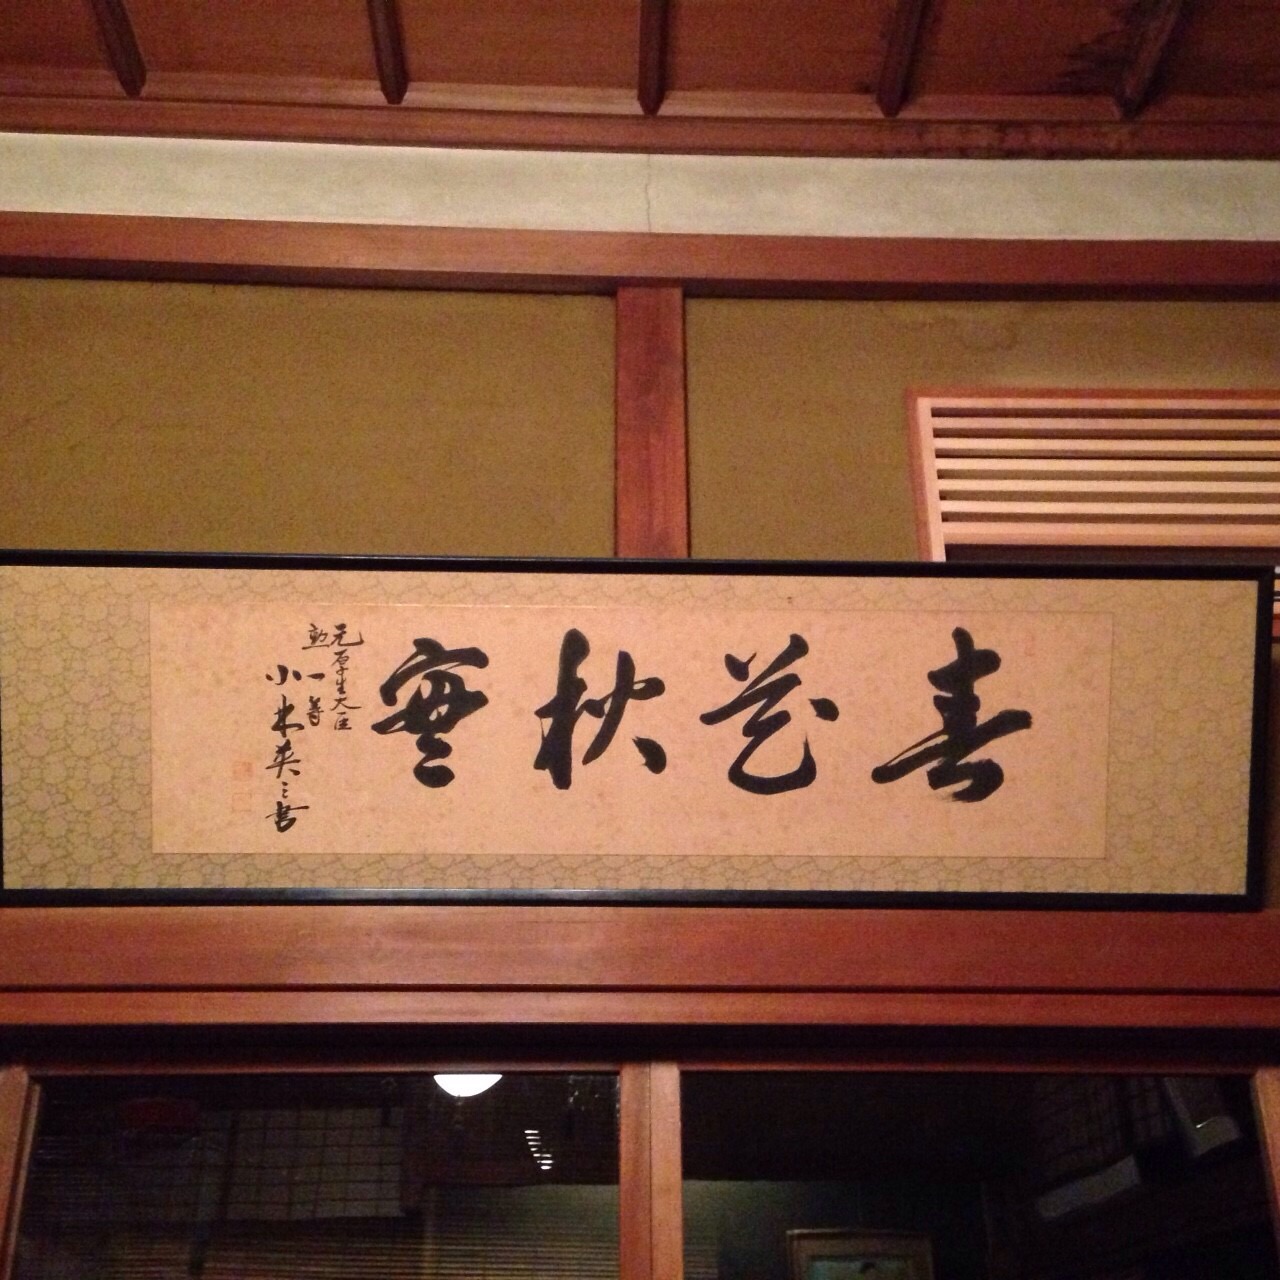 春花秋實
元厚生大臣
勲一等
小林英三書